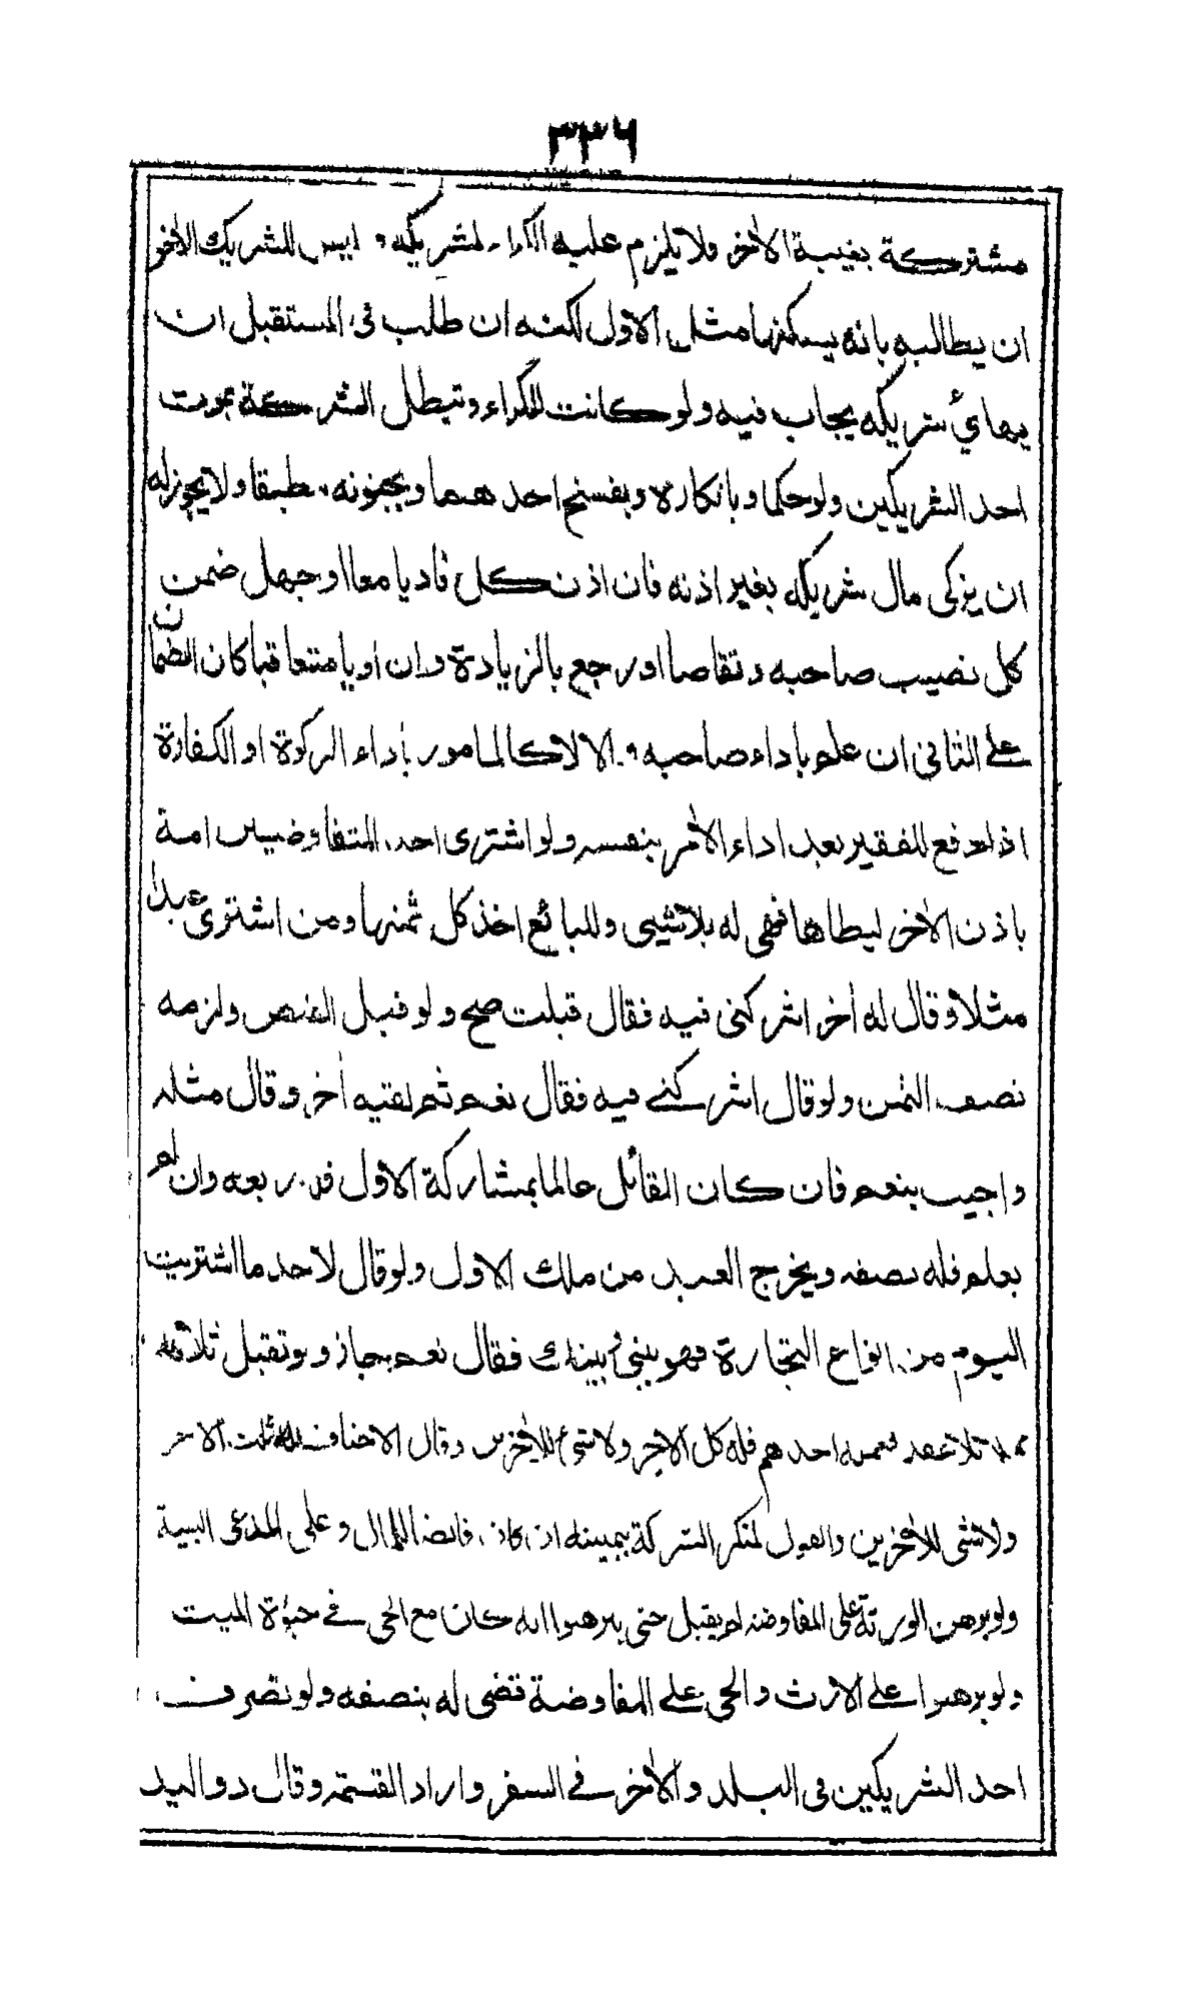 ٣٣٦
مشتركة بغيبة الاخر ولا يلزم عليه الكراء لشريكه وليس للشريك الاخر
ان يطالبه بانه يسكنها مثل الاول لكنه ان طلب فى المستقبل ان
يهايئ شريكه يجاب فيه ولو كانت للكراء وتبطل الشركة بموت
احد الشريكين ولو حكما وبانكاره وبفسخ احدهما وبجنونه مطبقا ولا يجوز له
ان يزكى مال شريكه بغير اذنه فان اذن كل فاديا معا او جهل ضمن
كل نصيب صاحبه وتقاصا او رجع بالزيادة وان اديا متعاقبا كان الضمان
على الثانى ان علم باداء صاحبه والا لا كالمامور بأداء الزكوة او الكفارة
اذا دفع للفقير بعد اداء الآمر بنفسه ولو اشترى احد المتفاوضين امة
باذن الاخر ليطاها فهى له بلا شيى وللبائع اخذ كل ثمنها ومن اشترى عبدا
مثلا وقال له أخر اشركنى فيه فقال قبلت صح ولو قبل القبض ولزمه
نصف الثمن ولو قال اشركنى فيه فقال نعم ثم لقيه أخر وقال مثله
واجيب بنعم فان كان القائل عالما بمشاركة الاول فله ربعه وان لم
يعلم فله نصفه ويخرج العبد من ملك الاول ولو قال لاحد ما اشتريت
اليوم من انواع التجارة فهو بينى وبينك فقال نعم جاز ولو تقبل ثلاثة
عملا بلا عقد فعمله احدهم فله كل الاجر ولا شئ للأخرين وقال الاحناف له ثلث الاجر
ولا شى للأخرين والقول لمنكر الشركة بيمينه ان كان قابضا للمال وعلى المدعى البينة
ولو برهن الورثة على المفاوضة لم يقبل حتى يبرهنوا انه كان مع الحى فى حيوة الميت
ولو برهنوا على الارث والحى على المفاوضة قضى له بنصفه ولو تصرف
احد الشريكين فى البلد والأخر فى السفر واراد القسمة وقال ذو اليد